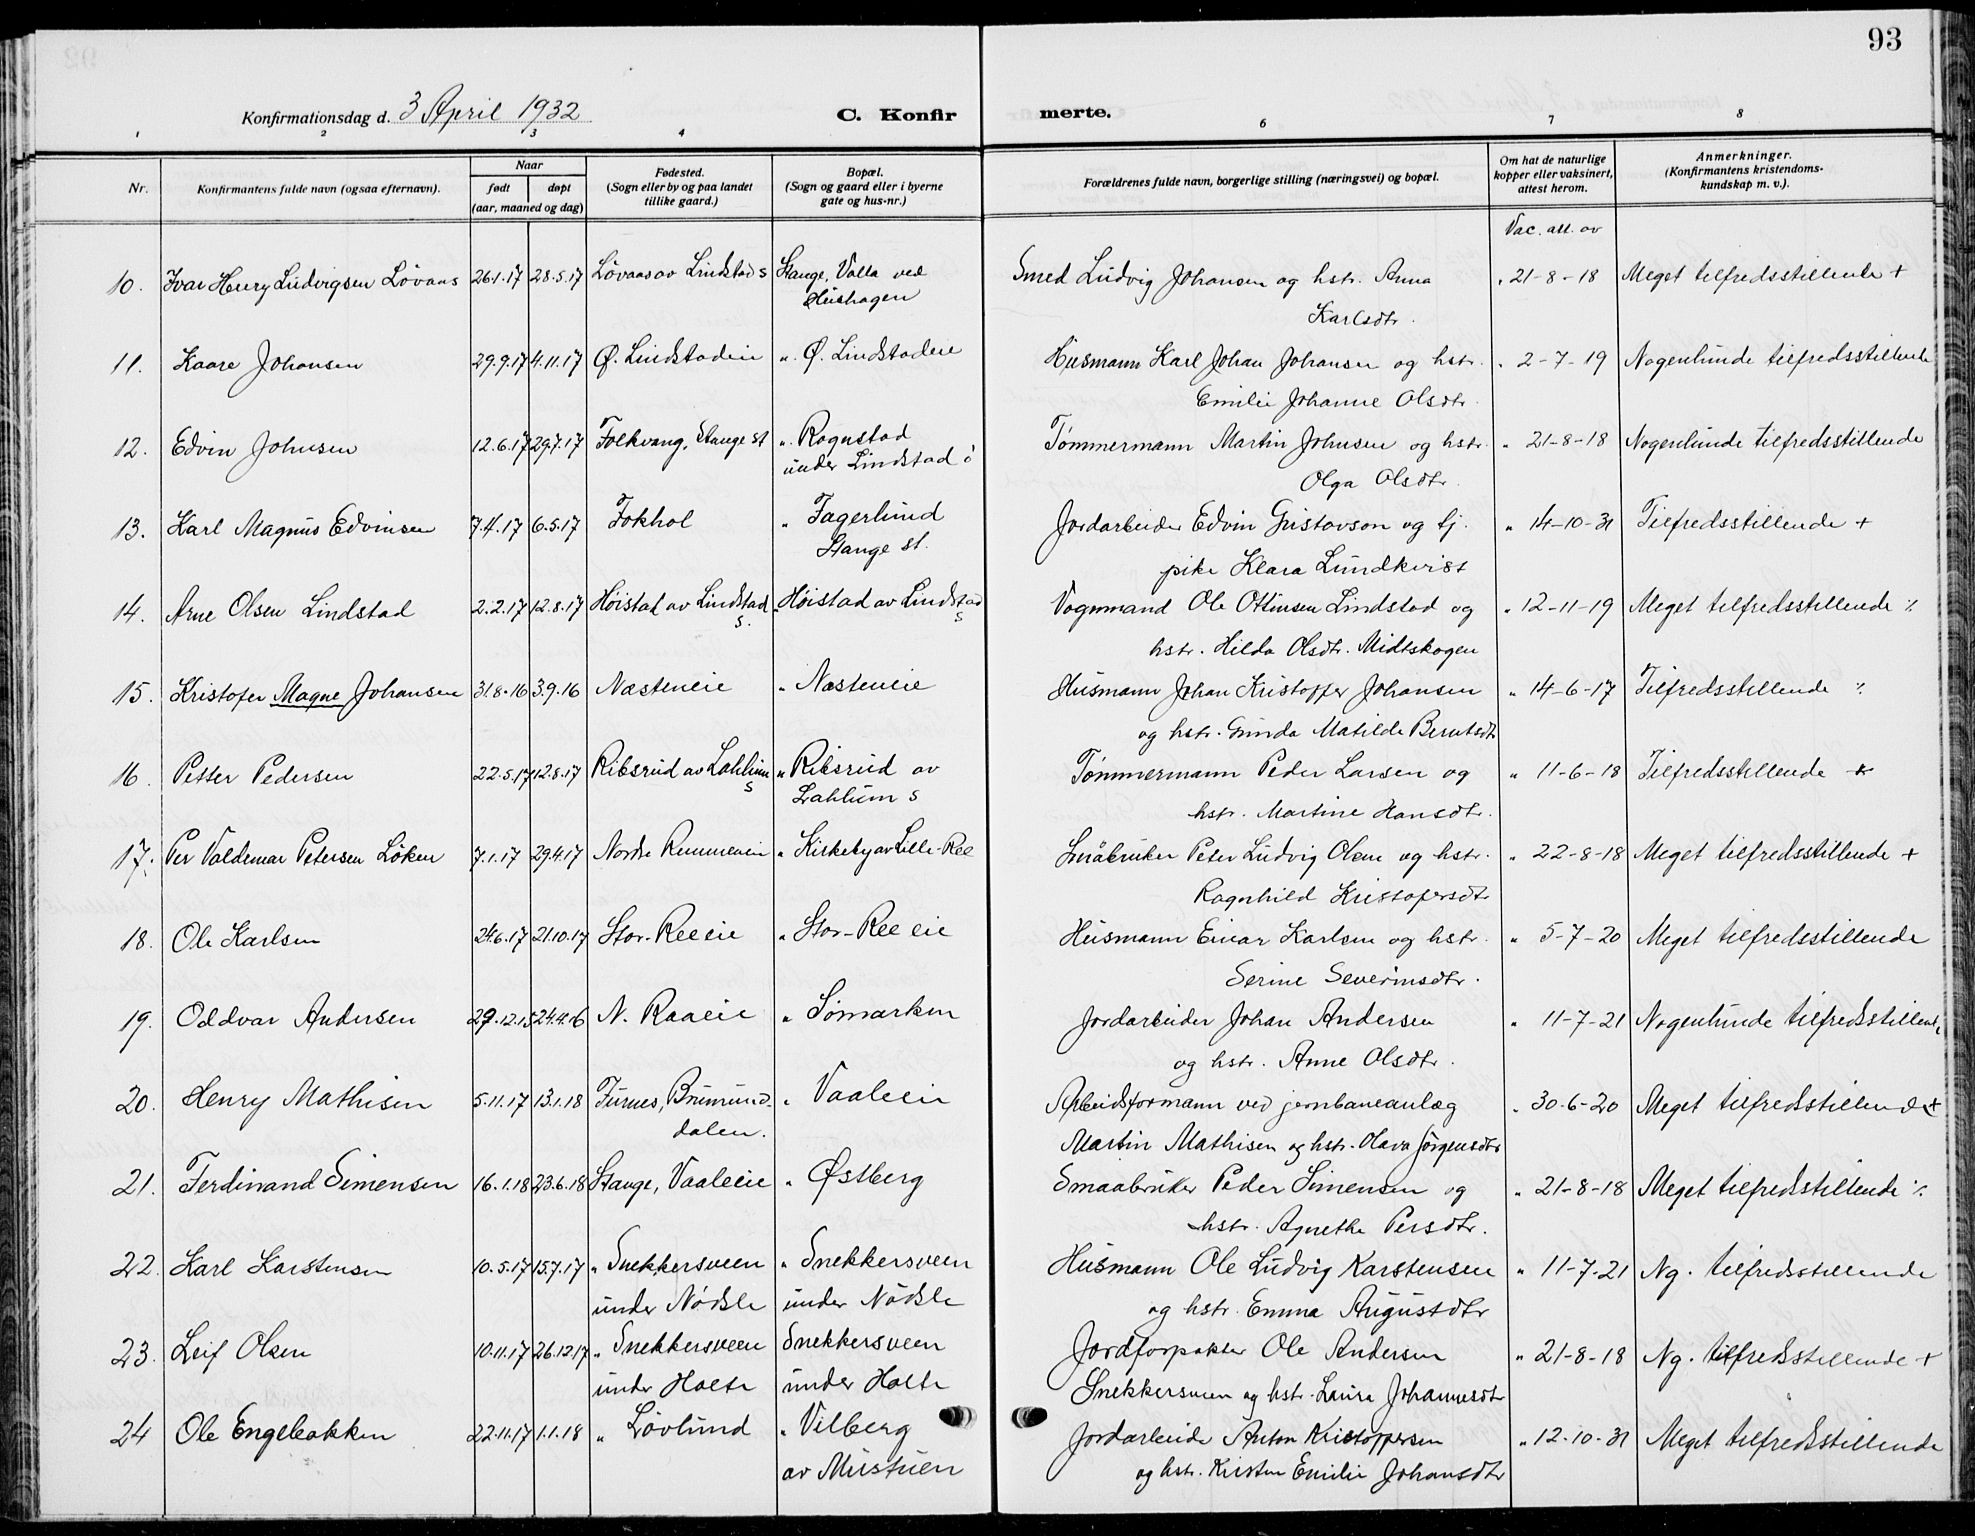 93
Konfirmationsdag d. 3 April 1932
C. Konfir merte.
1 2 3 4 6 7 8
Nr. | Konfirmantens fulde navn (ogsaa efternavn). | Naar født døpt (aar, maaned og dag) | Fødested. (Sogn eller by og paa landet tillike gaard.) | Bopæl. (Sogn og gaard eller i byerne gate og hus-nr.) | Forældrenes fulde navn, borgerlige stilling (næringsvei) og bopæl. | Om hat de naturlige kopper eller vaksinert, attest herom. | Anmerkninger. (Konfirmantens kristendomskundskap m. v.).
Vac. att. av
10. Ivar Henry Ludvigsen Lövaas 26.1.17 28.5.17 Lövaas av Lindstad s Stange, Valla ved Smed Ludvig Johansen og hstr. Anna " 21-8-18 Meget tilfredsstillende +
Hushagen Karlsdtr.
11. Kaare Johansen 29.9.17 4.11.17 Ø. Lindstadeie " Ø. Lindstadeie Husmann Karl Johan Johansen og hstr. " 2-7-19 Nogenlunde tilfredsstillende
Emilie Johanne Olsdtr.
12. Edvin Johnsen 12.6.17 29.7.17 Folkvang, Stange st " Rognstad Tømmermann Martin Johnsen og hstr. " 21-8-18 Nogenlunde tilfredsstillende
under Lindstad ö Olga Olsdtr.
13. Karl Magnus Edvinsen 7.4.17 6.5.17 Fokhol " Fagerlund Jordarbeider Edvin Gustavson og tj. " 14-10-31 Tilfredsstillende +
Stange st. pike Klara Lundkvist
14. Arne Olsen Lindstad 2.2.17 12.8.17 Höistad av Lindstad s. " Höistad av Lindstad s Vognmand Ole Ottinsen Lindstad og " 12-11-19 Meget tilfredsstillende ⁒
hstr. Hilda Olsdtr. Midtskogen
15. Kristofer Magne Johansen 31.8.16 3.9.16 Næsteneie " Næsteneie Husmann Johan Kristoffer Johansen " 14-6-17 Tilfredsstillende ⁒
og hstr. Gunda Matilde Berntsdtr
16. Petter Pedersen 22.5.17 12.8.17 Ribsrud av Lahlum s " Ribsrud av Tømmermann Peder Larsen og " 11-6-18 Tilfredsstillende +
Lahlum s hstr. Martine Hansdtr.
17. Per Valdemar Petersen Löken 7.1.17 29.4.17 Nordre Rummeneie " Kirkeby av Lille-Ree Småbruker Peter Ludvig Olsen og hstr. " 22-8-18 Meget tilfredsstillende +
Ragnhild Kristofersdtr
18. Ole Karlsen 24.6.17 21.10.17 Stor-Reeeie " Stor-Ree eie Husmann Einar Karlsen og hstr. " 5-7-20 Meget tilfredsstillende
Serine Severinsdtr.
19. Oddvar Andersen 29.12.15 24.4.16 N. Raaeie " Sömarken Jordarbeider Johan Andersen " 11-7-21 Nogenlunde tilfredsstillende
og hstr. Anne Olsdtr.
20. Henry Mathisen 5.11.17 13.1.18 Furnes, Brumund- " Vaaleeie Arbeidsformann ved jernbaneanlæg " 30-6-20 Meget tilfredsstillende +
dalen. Martin Mathisen og hstr. Olava Jörgensdtr
21. Ferdinand Simensen 16.1.18 23.6.18 Stange, Vaaleeie " Østberg Smaabruker Peder Simensen og " 21-8-18 Meget tilfredsstillende ⁒
hstr. Agnethe Persdtr.
22. Karl Karstensen 10.5.17 15.7.17 " Snekkersveen " Snekkersveen Husmann Ole Ludvig Karstensen " 11-7-21 Ng. tilfredsstillende
under Nödsle under Nödsle og hstr. Emma Augustdtr
23. Leif Olsen 10.11.17 26.12.17 " Snekkersveen Snekkersveen Jordforpakter Ole Andersen " 21-8-18 Ng. tilfredsstillende +
under Holte under Holte Snekkersveen og hstr. Laura Johannesdtr
24 Ole Engebakken 22.11.17 1.1.18 " Lövlund " Vilberg Jordarbeider Anton Kristoffersen " 12-10-31 Meget tilfredsstillende
av Mustuen og hstr. Kirsten Emilie Johansdtr